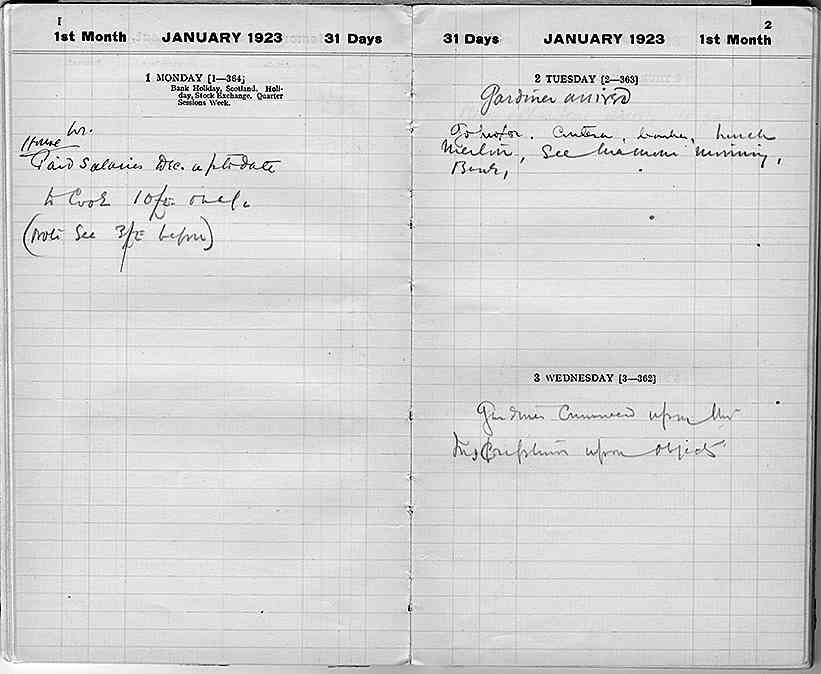 1
1st Month JANUARY 1923 31 Days
1 MONDAY [1—364]
Bank Holiday, Scotland. Holi-
day, Stock Exchange. Quarter
Sessions Week.
House
Paid Salaries Dec. up to date
to Cook 10/-
(Note See before)
2
31 Days JANUARY 1923 1st Month
2 TUESDAY [2—363]
Gardiner arrived
lunch
Merton, See morning,
Bank,
3 WEDNESDAY [3—362]
Gardiner Commenced upon the
Inscriptions upon objects